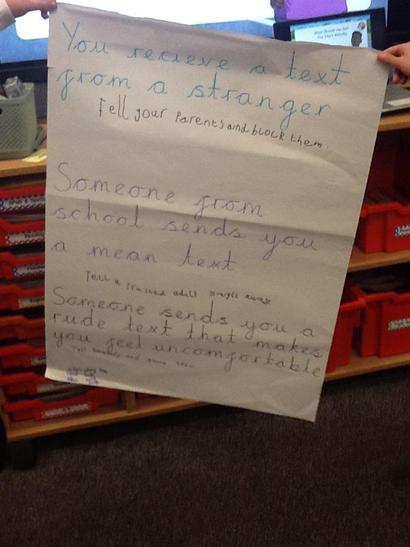 You recieve a text
from a stranger
Tell your Parents and block them.
Someone from
school sends you
a mean text
Tell a trusted adult straight away
Someone sends you a
rude text that makes
you feel uncomfortable